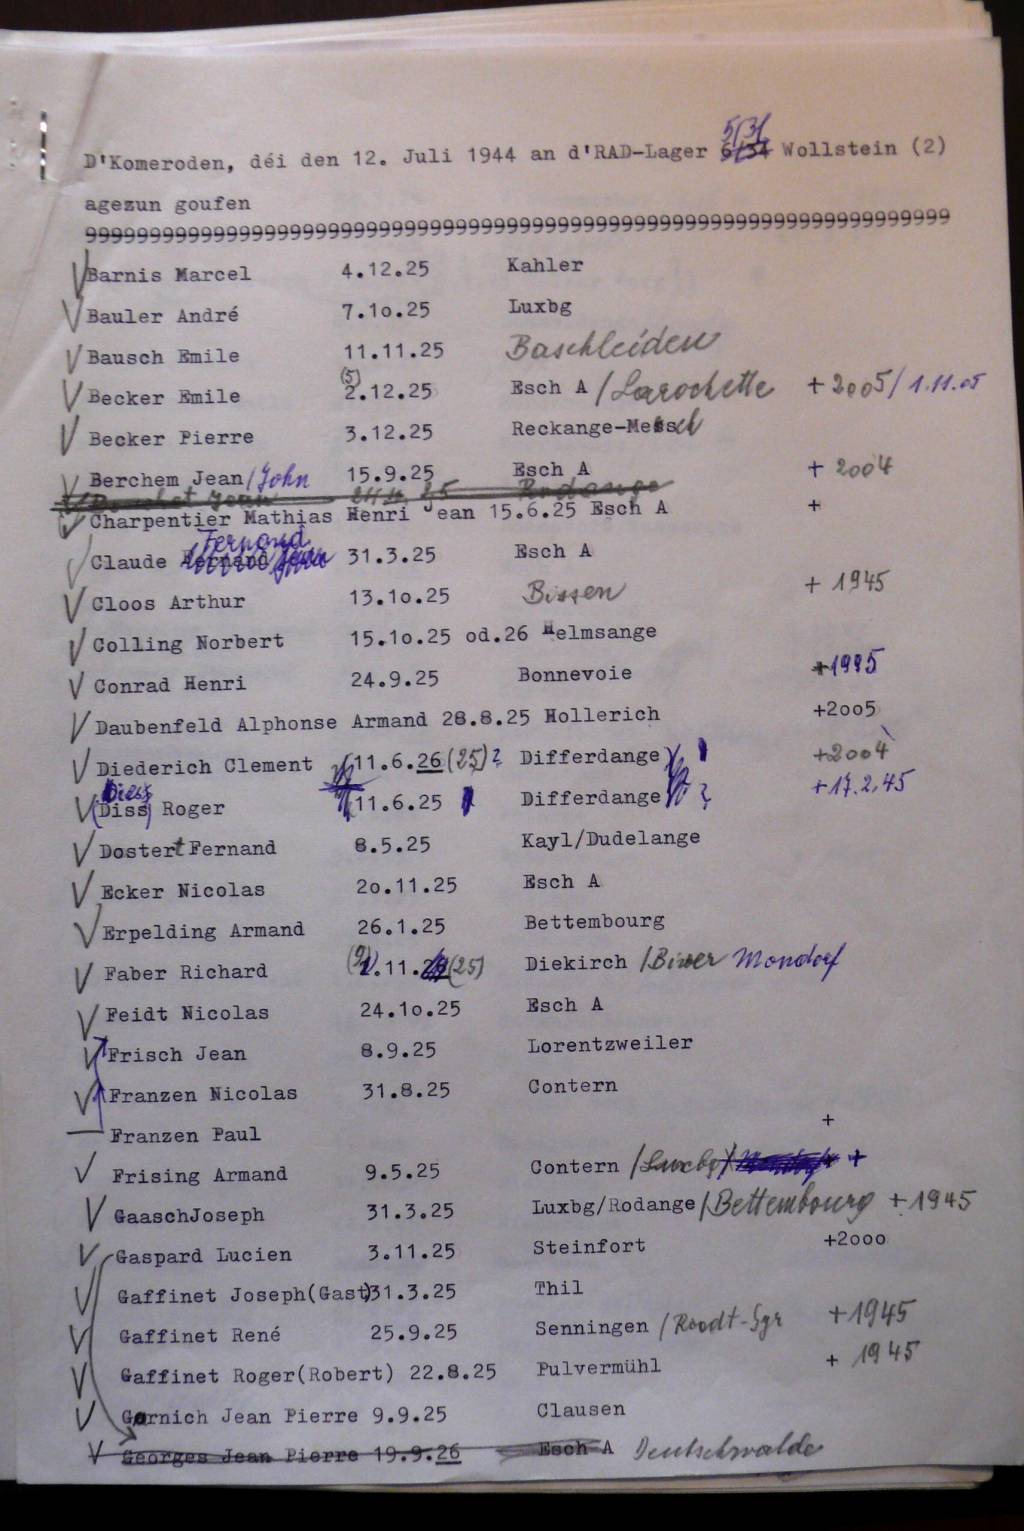 5/31
D'Komeroden, déi den 12. Juli 1944 an d'RAD-Lager 6/34 Wollstein (2)
agezun goufen
99999999999999999999999999999999999999999999999999999999999999999999
Barnis Marcel 4.12.25 Kahler
Bauler André 7.10.25 Luxbg
Bausch Emile 11.11.25 Baschleiden
Becker Emile (5) 2.12.25 Esch A /Larochette +2005/ 1.11.05
Becker Pierre 3.12.25 Reckange-Mersch
Berchem Jean/John 15.9.25 Esch A + 2004
Jean Rodange
Charpentier Mathias Henri Jean 15.6.25 Esch A +
Claude Fernand 31.3.25 Esch A
Cloos Arthur 13.10.25 Bissen + 1945
Colling Norbert 15.10.25 od.26 Helmsange
Conrad Henri 24.9.25 Bonnevoie +1995
Daubenfeld Alphonse Armand 28.8.25 Hollerich +2005
Diederich Clement (11.6.26 (25)? Differdange) +2004
Diess
(Diss) Roger (11.6.25 Differdange) ? +17.2.45
Dostert Fernand 8.5.25 Kayl/Dudelange
Ecker Nicolas 20.11.25 Esch A
Erpelding Armand 26.1.25 Bettembourg
Faber Richard (2) .11. (25) Diekirch /Biwer Mondorf
Feidt Nicolas 24.10.25 Esch A
Frisch Jean 8.9.25 Lorentzweiler
Franzen Nicolas 31.8.25 Contern
Franzen Paul +
Frising Armand 9.5.25 Contern /Luxbg/ +
GaaschJoseph 31.3.25 Luxbg/Rodange/Bettembourg +1945
Gaspard Lucien 3.11.25 Steinfort +2000
Gaffinet Joseph(Gast)31.3.25 Thil
Gaffinet René 25.9.25 Senningen /Roodt-Syr +1945
Gaffinet Roger(Robert) 22.8.25 Pulvermühl + 1945
Garnich Jean Pierre 9.9.25 Clausen
Georges Jean Pierre 19.9.26 Esch A Deutschwalde